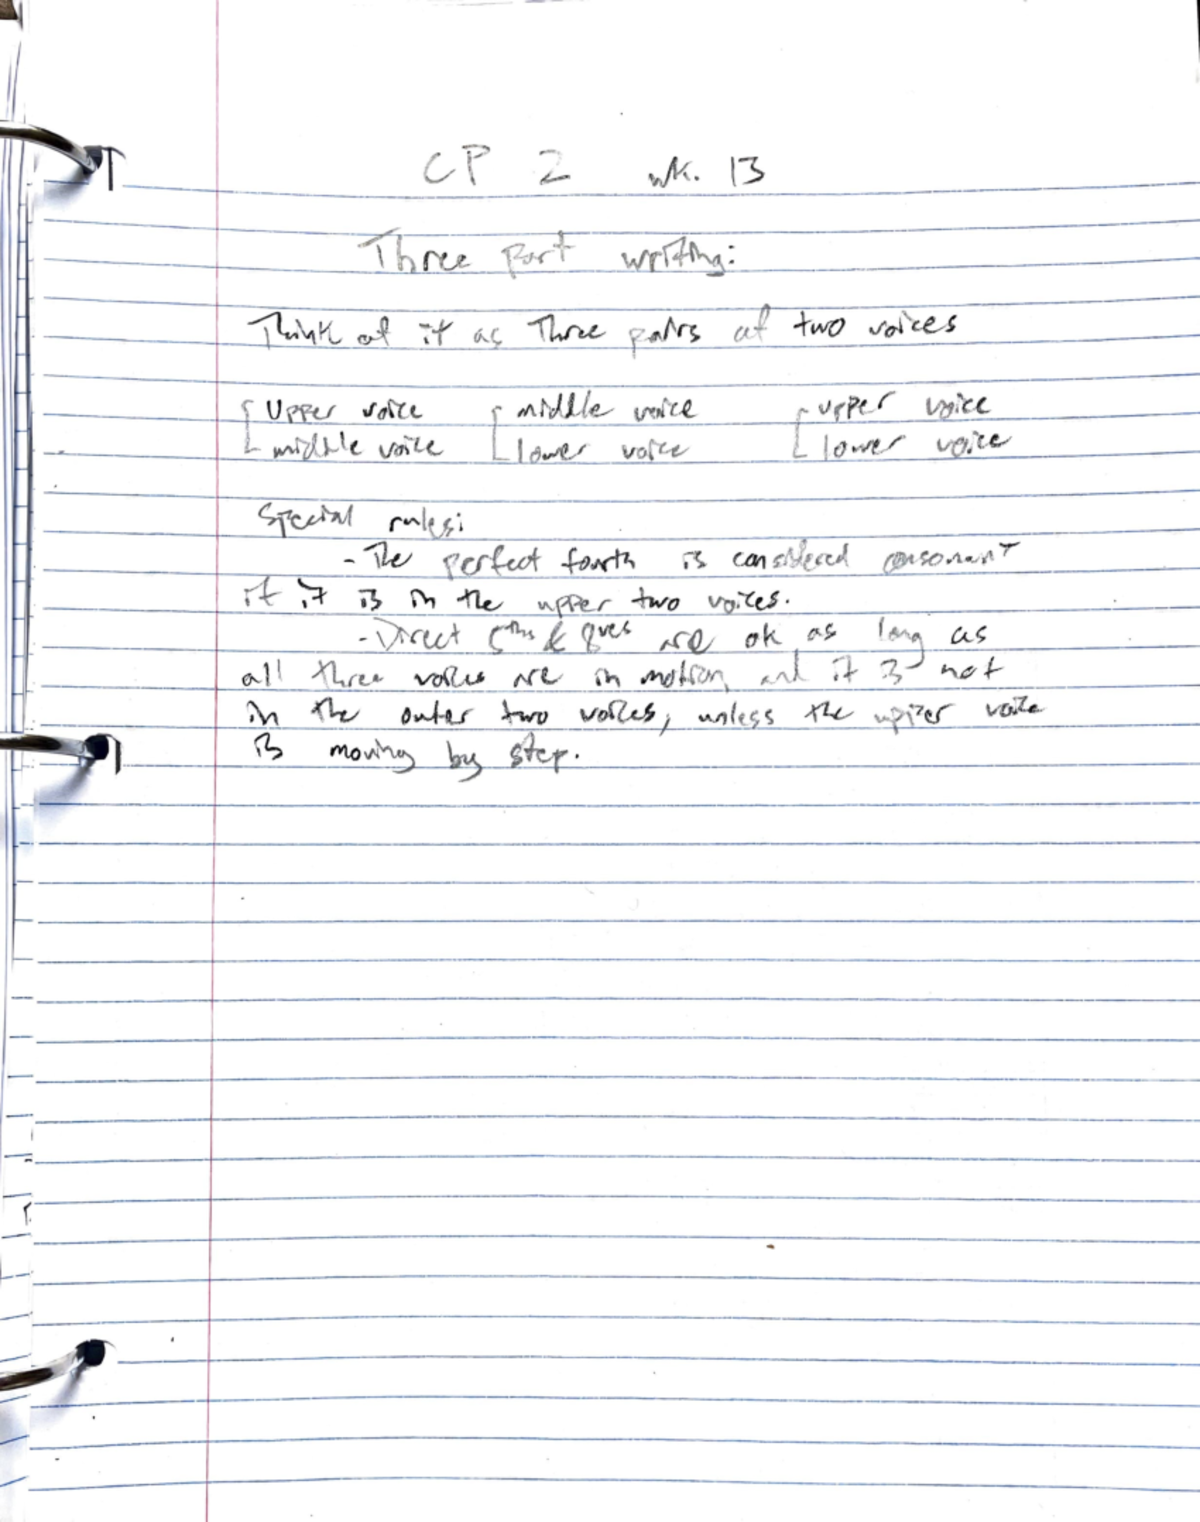 CP 2 wk. 13
Three part writing:
Think of it as Three pairs of two voices
Upper voice middle voice upper voice
middle voice lower voice lower voice
Special rules:
- The perfect fourth is considered consonant
if it is in the upper two voices.
- Direct 5ths & 8ves are ok as long as
all three voices are in motion, and it is not
in the outer two voices, unless the upper voice
is moving by step.